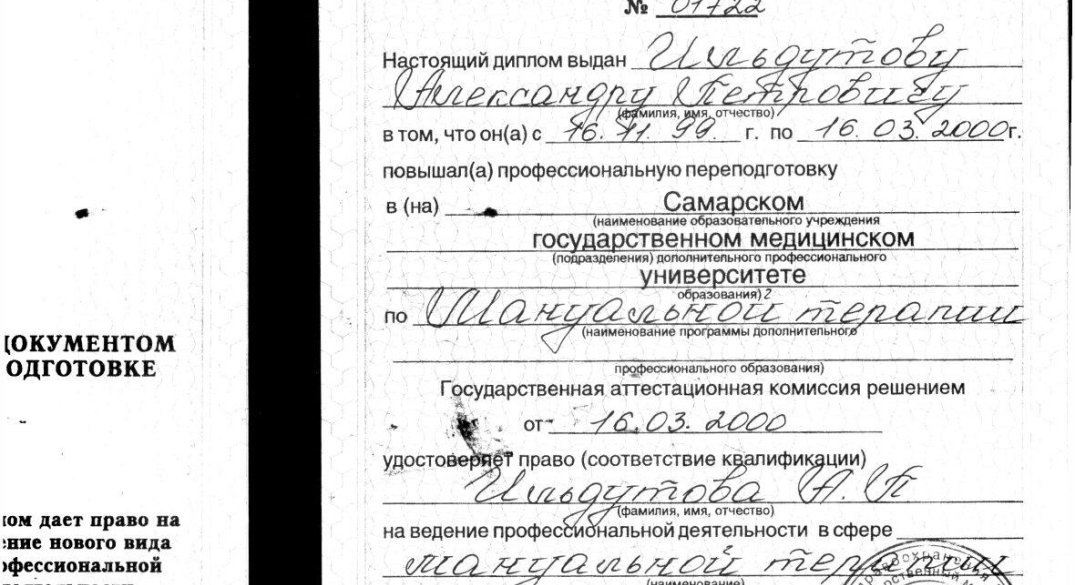 № 01722
Настоящий диплом выдан Ильдутову
Александру Петровичу
(фамилия, имя, отчество)
в том, что он(а) с 16.11.99. г. по 16.03.2000г.
повышал(а) профессиональную переподготовку
в (на) Самарском
(наименование образовательного учреждения
государственном медицинском
(подразделения) дополнительного профессионального
университете
образования) 2
по Мануальной терапии
(наименование программы дополнительного
профессионального образования)
Государственная аттестационная комиссия решением
от 16.03.2000
удостоверяет право (соответствие квалификации)
Ильдутова А.П
(фамилия, имя, отчество)
на ведение профессиональной деятельности в сфере
мануальной терапии
(наименование)
ДОКУМЕНТОМ
ОДГОТОВКЕ
ом дает право на
ение нового вида
офессиональной